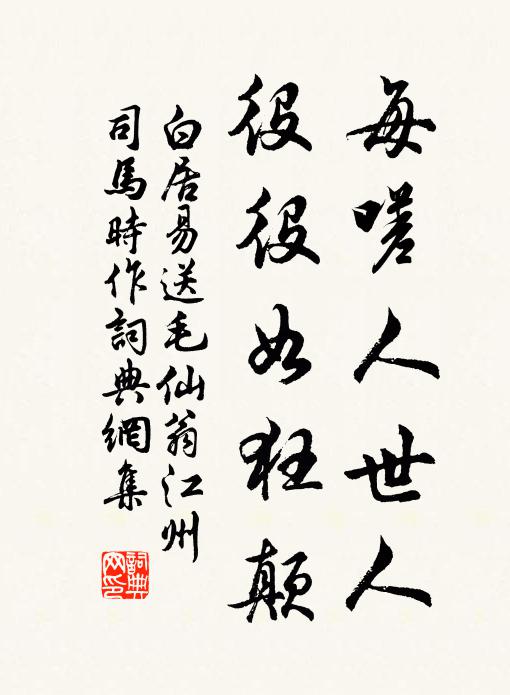 每嗟人世人
役役如狂顛
白居易送毛仙翁江州
司馬時作詞典網集
詞典
網印